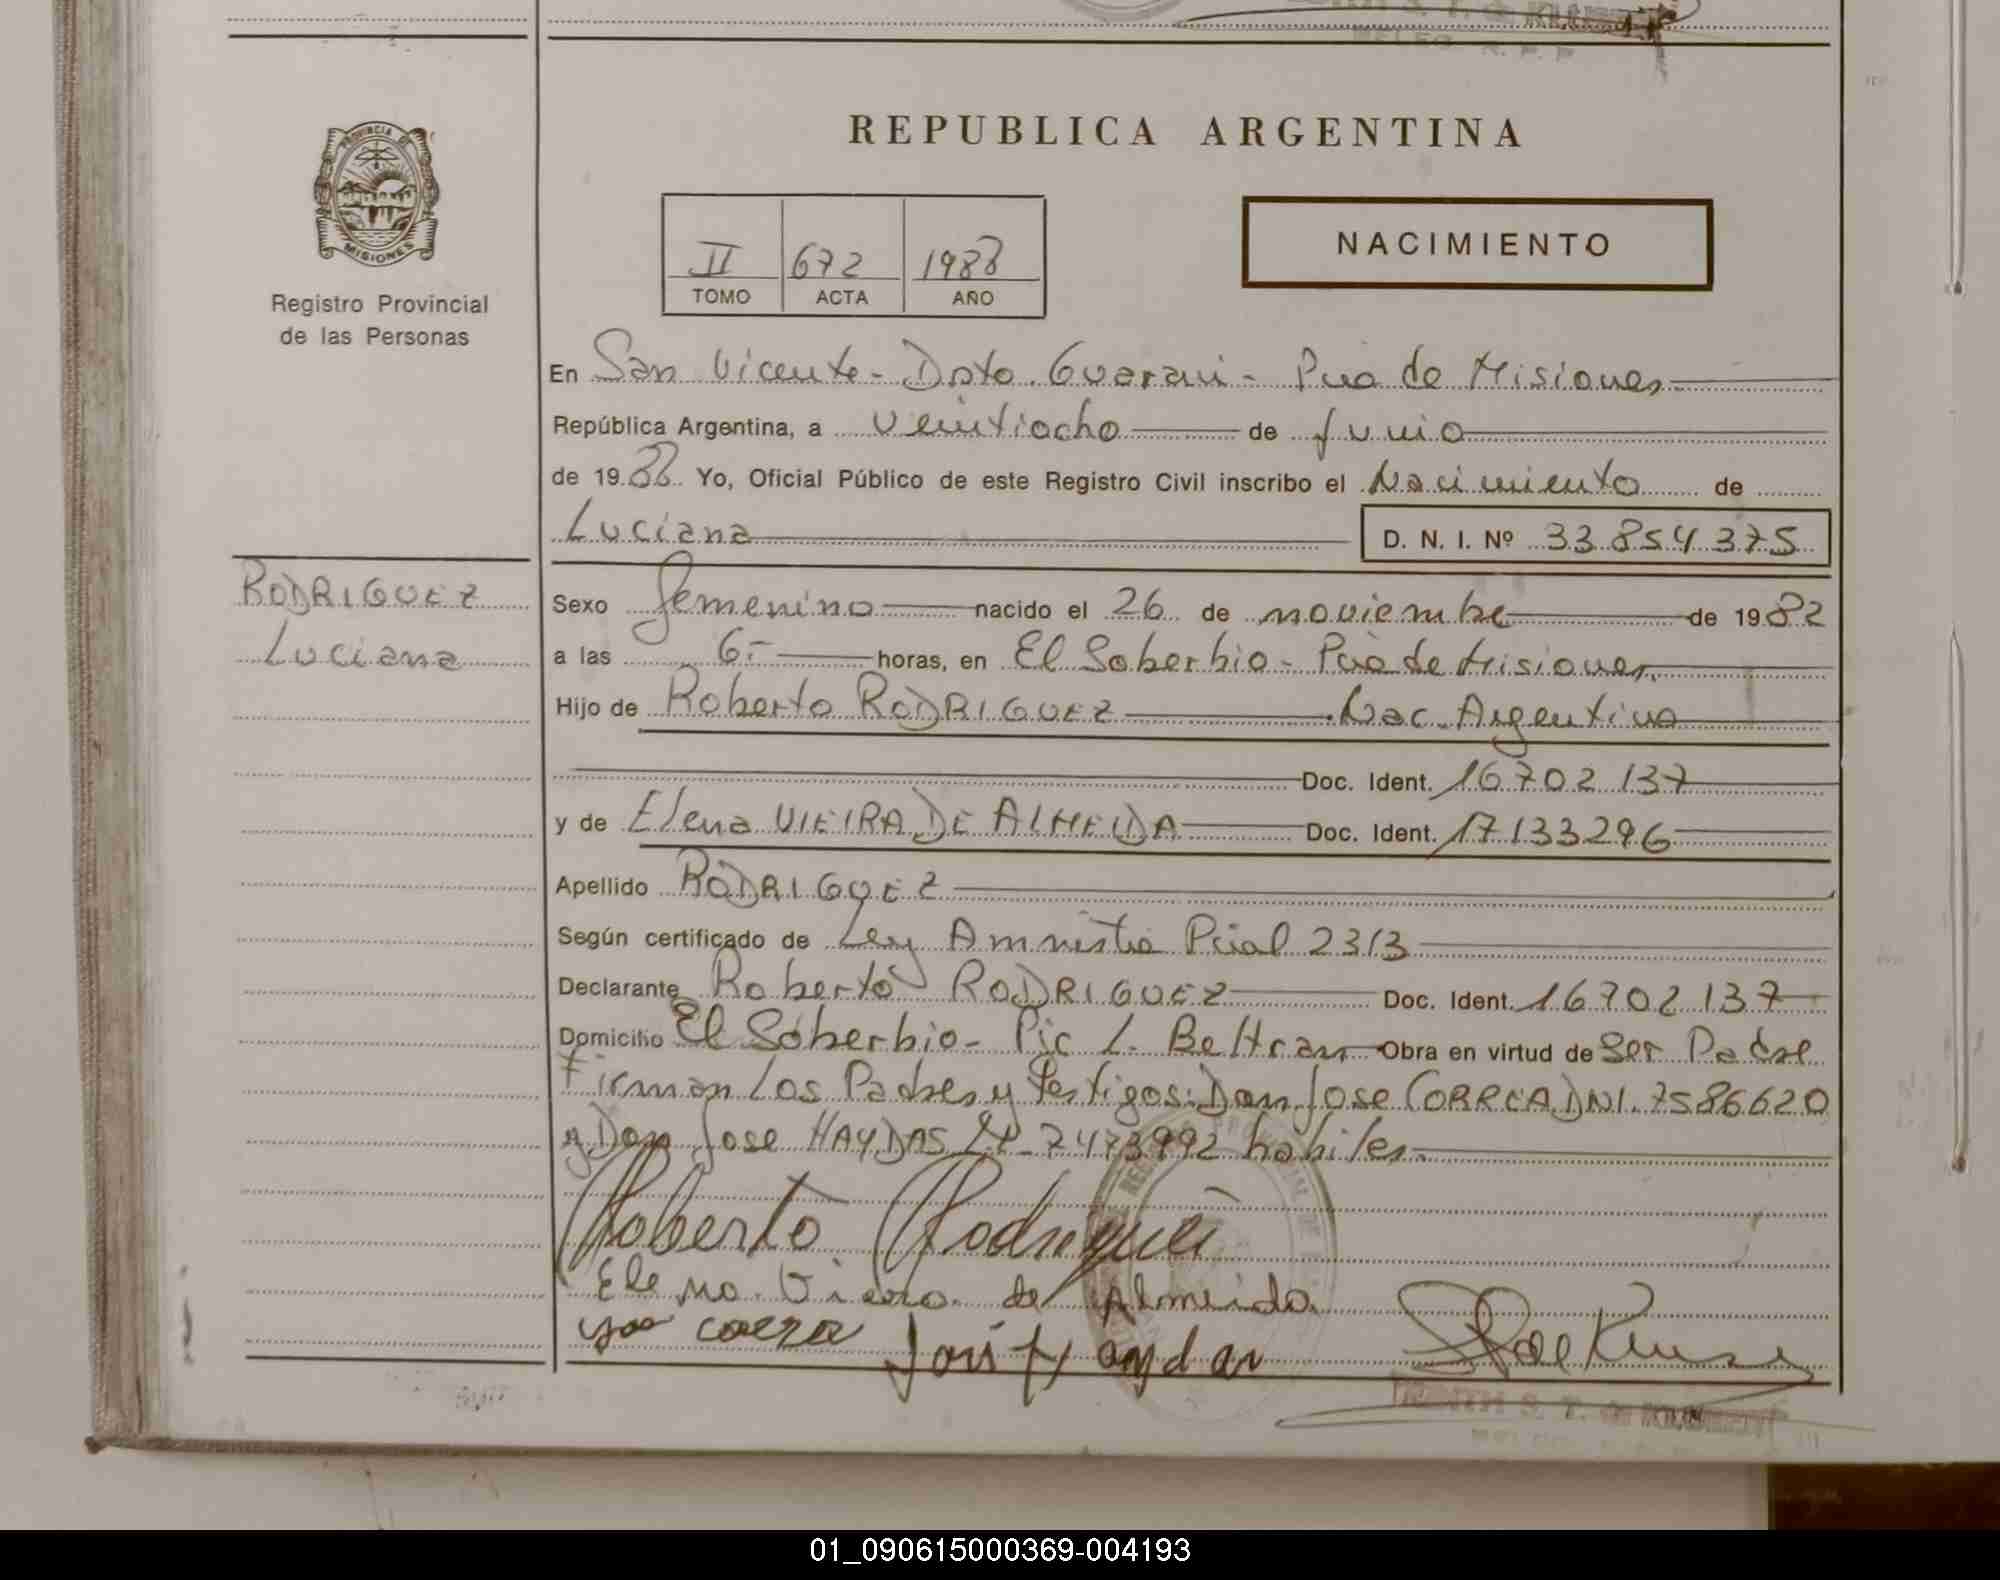 REPUBLICA ARGENTINA
PROVINCIA DE
MISIONES
Registro Provincial
de las Personas
II 672 1988
TOMO ACTA AÑO
NACIMIENTO
En San Vicente - Dpto. Guarani - Pcia de Misiones
República Argentina, a veintiocho de Junio
de 1988 Yo, Oficial Público de este Registro Civil inscribo el Nacimiento de
Luciana D. N. I. Nº 33.854.375
RODRIGUEZ
Luciana
Sexo femenino nacido el 26 de noviembre de 1982
a las 6.- horas, en El Soberbio - Pcia de Misiones.
Hijo de Roberto RODRIGUEZ Nac. Argentino
Doc. Ident. 16.702.137
y de Elena VIEIRA DE ALMEIDA Doc. Ident. 17.133.296
Apellido RODRIGUEZ
Según certificado de Ley Amnistia Pcial 2313
Declarante Roberto RODRIGUEZ Doc. Ident. 16.702.137
Domicilio El Soberbio - Pic L. Beltran Obra en virtud de Ser Padre
Firman Los Padres y testigos: Don Jose CORREA DNI. 7586620
y Don Jose HAYDAS LE- 7473992 habiles.-
Roberto Rodriguez
Elena Vieira de Almeida
Correa
S. T. de
01_090615000369-004193